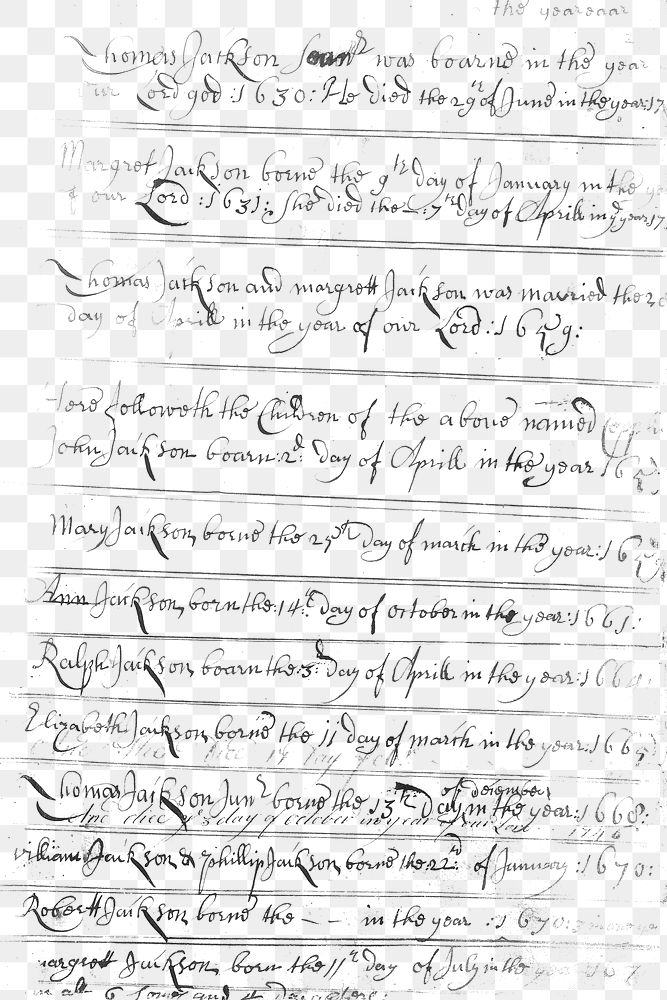 the year
Thomas Jackson was boarne in the year
our Lord god :1630: He died the 29th of June in the year:17
Margret Jackson borne the 9th day of January in the ye
of our Lord :1631: She died the 7th day of Aprill in ye year 17
Thomas Jackson and margrett Jackson was married the 2
day of Aprill in the year of our Lord :1659:
Here followeth the Children of the above named
John Jackson boarn:2d: day of Aprill in the year 16
Mary Jackson, borne the 25th day of march in the year:16
Ann Jackson, born the:14th day of october in the year:1661:
Ralph Jackson, boarn the:3d day of Aprill in the year:166
Elizabeth Jackson, borne the 11 day of march in the year:166
day
of deiember
Thomas Jackson Junr borne the 13th day in the year:1668:
day of october in year of our 1744
william Jackson & phillip Jackson borne the 22d of January :1670:
Robertt Jackson borne the — — in the year :1670:
margrett Jackson, born the 11th day of July in the
in all 6 sones and 4 Daughters: